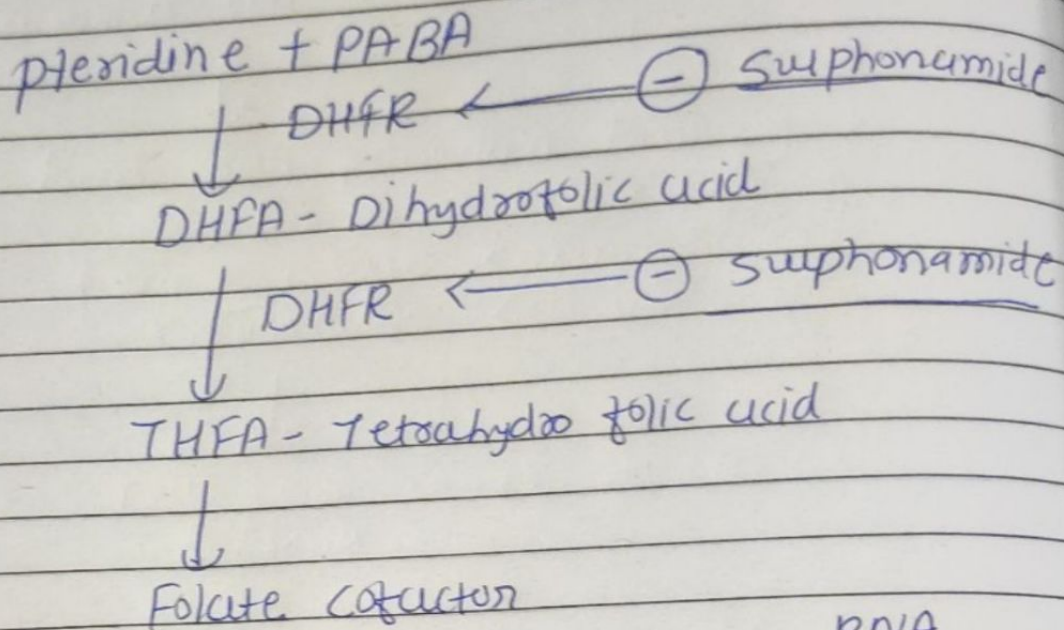 Pteridine + PABA
DHFR ← ⊖ Sulphonamide
DHFA - Dihydrofolic acid
DHFR ← ⊖ Sulphonamide
THFA - Tetrahydro folic acid
Folate cofactor